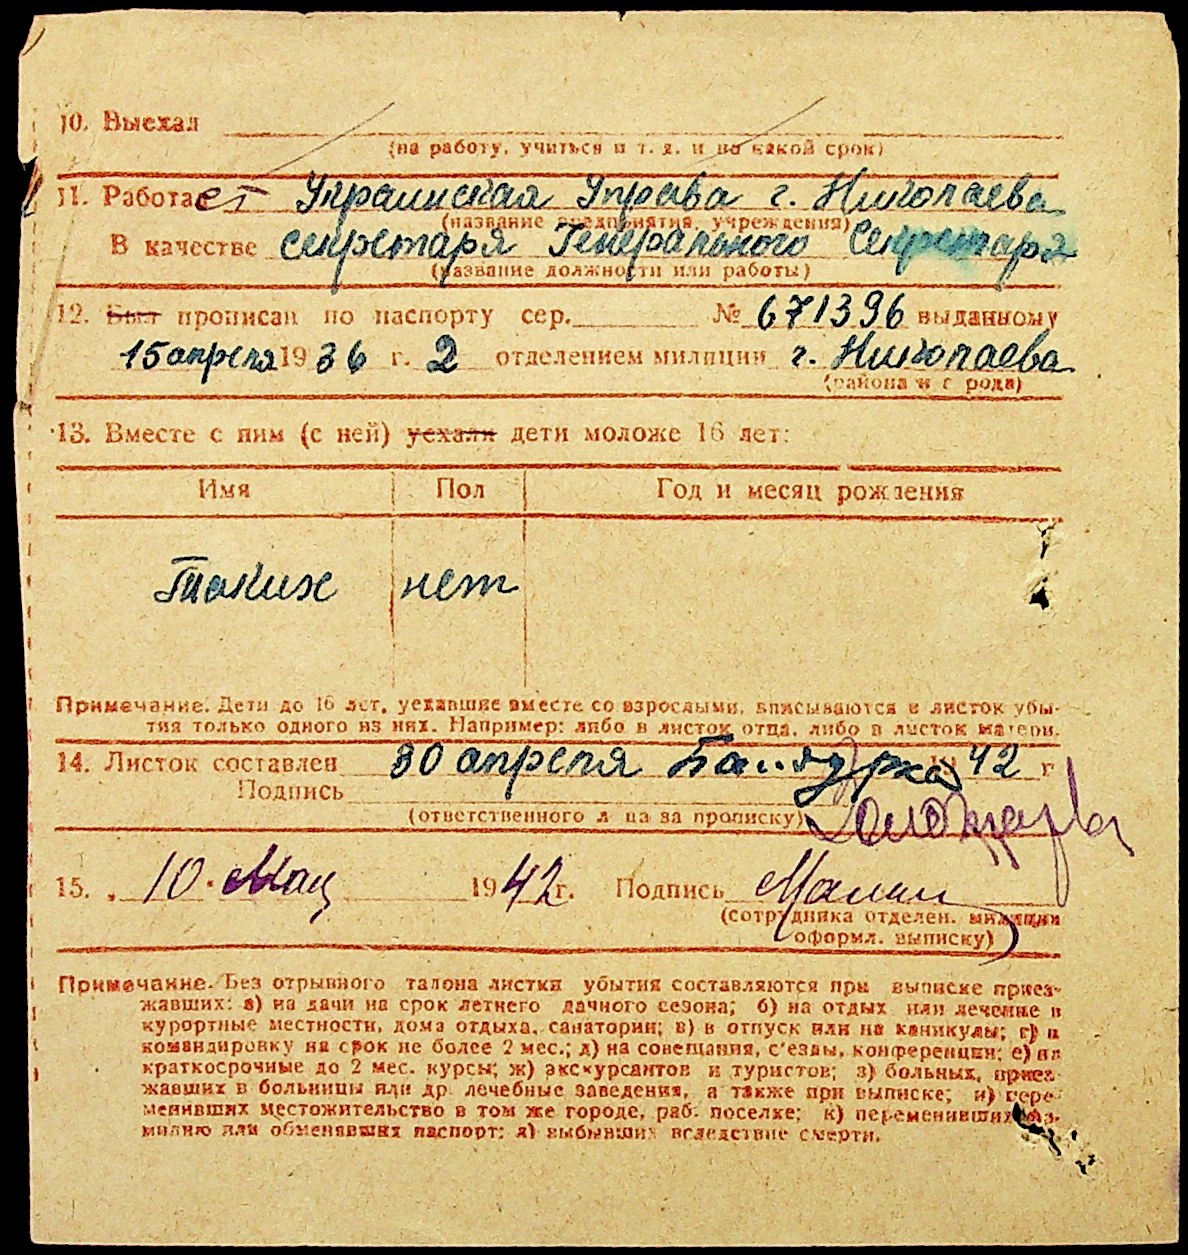 10. Выехал
(на работу, учиться и т. д. и на какой срок)
11. Работает Украинская Управа г. Николаева
(название предприятия, учреждения)
В качестве секретаря Генерального Секретаря
(название должности или работы)
12. Был прописан по паспорту сер. № 671396 выданному
15 апреля 1936 г. 2 отделением милиции г. Николаева
(района и города)
13. Вместе с ним (с ней) уехали дети моложе 16 лет:
Имя Пол Год и месяц рождения
Таких нет
Примечание. Дети до 16 лет, уехавшие вместе со взрослыми, вписываются в листок убы-
тия только одного из них. Например: либо в листок отца, либо в листок матери.
14. Листок составлен 30 апреля 1942 г
Подпись
(ответственного лица за прописку)
15. „ 10 Мая 1942 г. Подпись
(сотрудника отделен. милиции
оформл. выписку)
Примечание. Без отрывного талона листки убытия составляются при выписке приез-
жавших: а) на дачи на срок летнего дачного сезона; б) на отдых или лечение в
курортные местности, дома отдыха, санатории; в) в отпуск или на каникулы; г) в
командировку на срок не более 2 мес.; д) на совещания, с'езды, конференции; е) на
краткосрочные до 2 мес. курсы; ж) экскурсантов и туристов; з) больных, приез-
жавших в больницы или др. лечебные заведения, а также при выписке; и) пере-
менивших местожительство в том же городе, раб. поселке; к) переменивших фа-
милию или обменявших паспорт; л) выбывших вследствие смерти.